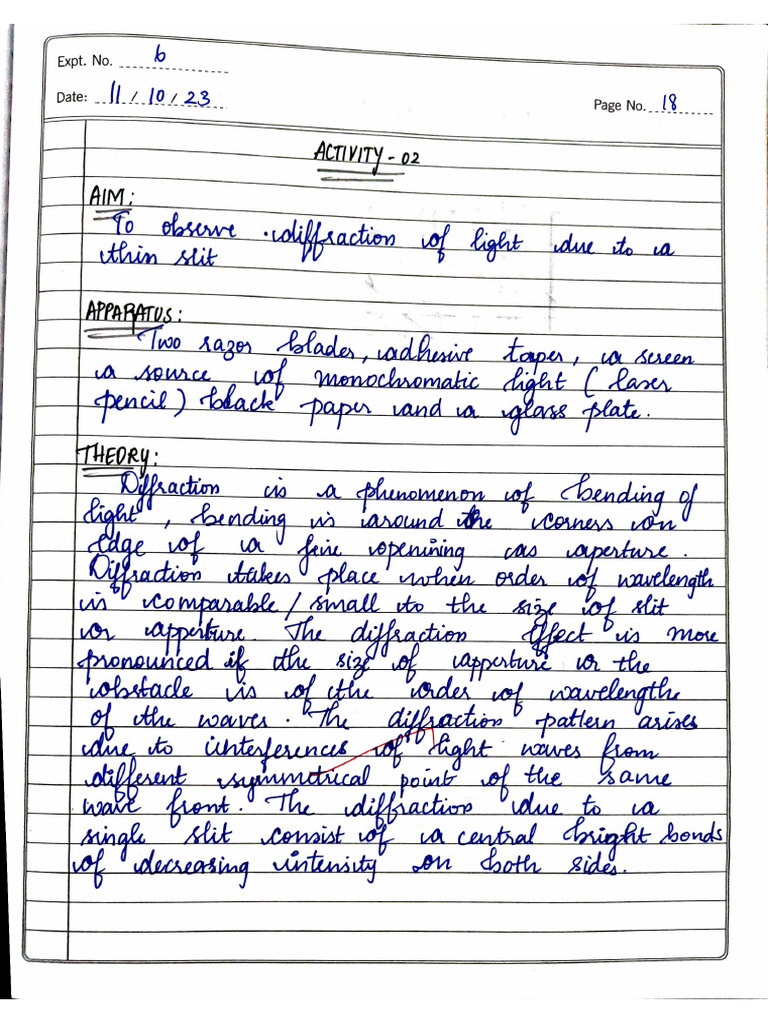 Expt. No. 6
Date: 11/10/23
Page No. 18
ACTIVITY-02
AIM:
To observe diffraction of light due to a
thin slit
APPARATUS:
Two razor blades, adhesive tapes, a screen
a source of monochromatic light (laser
pencil) black paper and a glass plate.
THEORY:
Diffraction is a phenomenon of bending of
light, bending is around the corners on
edge of a fine openining as aperture.
Diffraction takes place when order of wavelength
is comparable/small to the size of slit
or apperture. The diffraction effect is more
pronounced if the size of apperture or the
obstacle is of the order of wavelengthe
of the waves. The diffraction pattern arises
due to interferences of light waves from
different symmetrical point of the same
wave front. The diffraction due to a
single slit consist of a central bright bonds
of decreasing intensity on both sides.